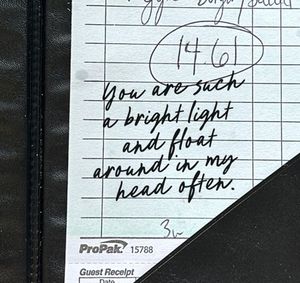 14.61
You are such
a bright light
and float
around in my
head often.
ProPak. 15788
Guest Receipt
Date